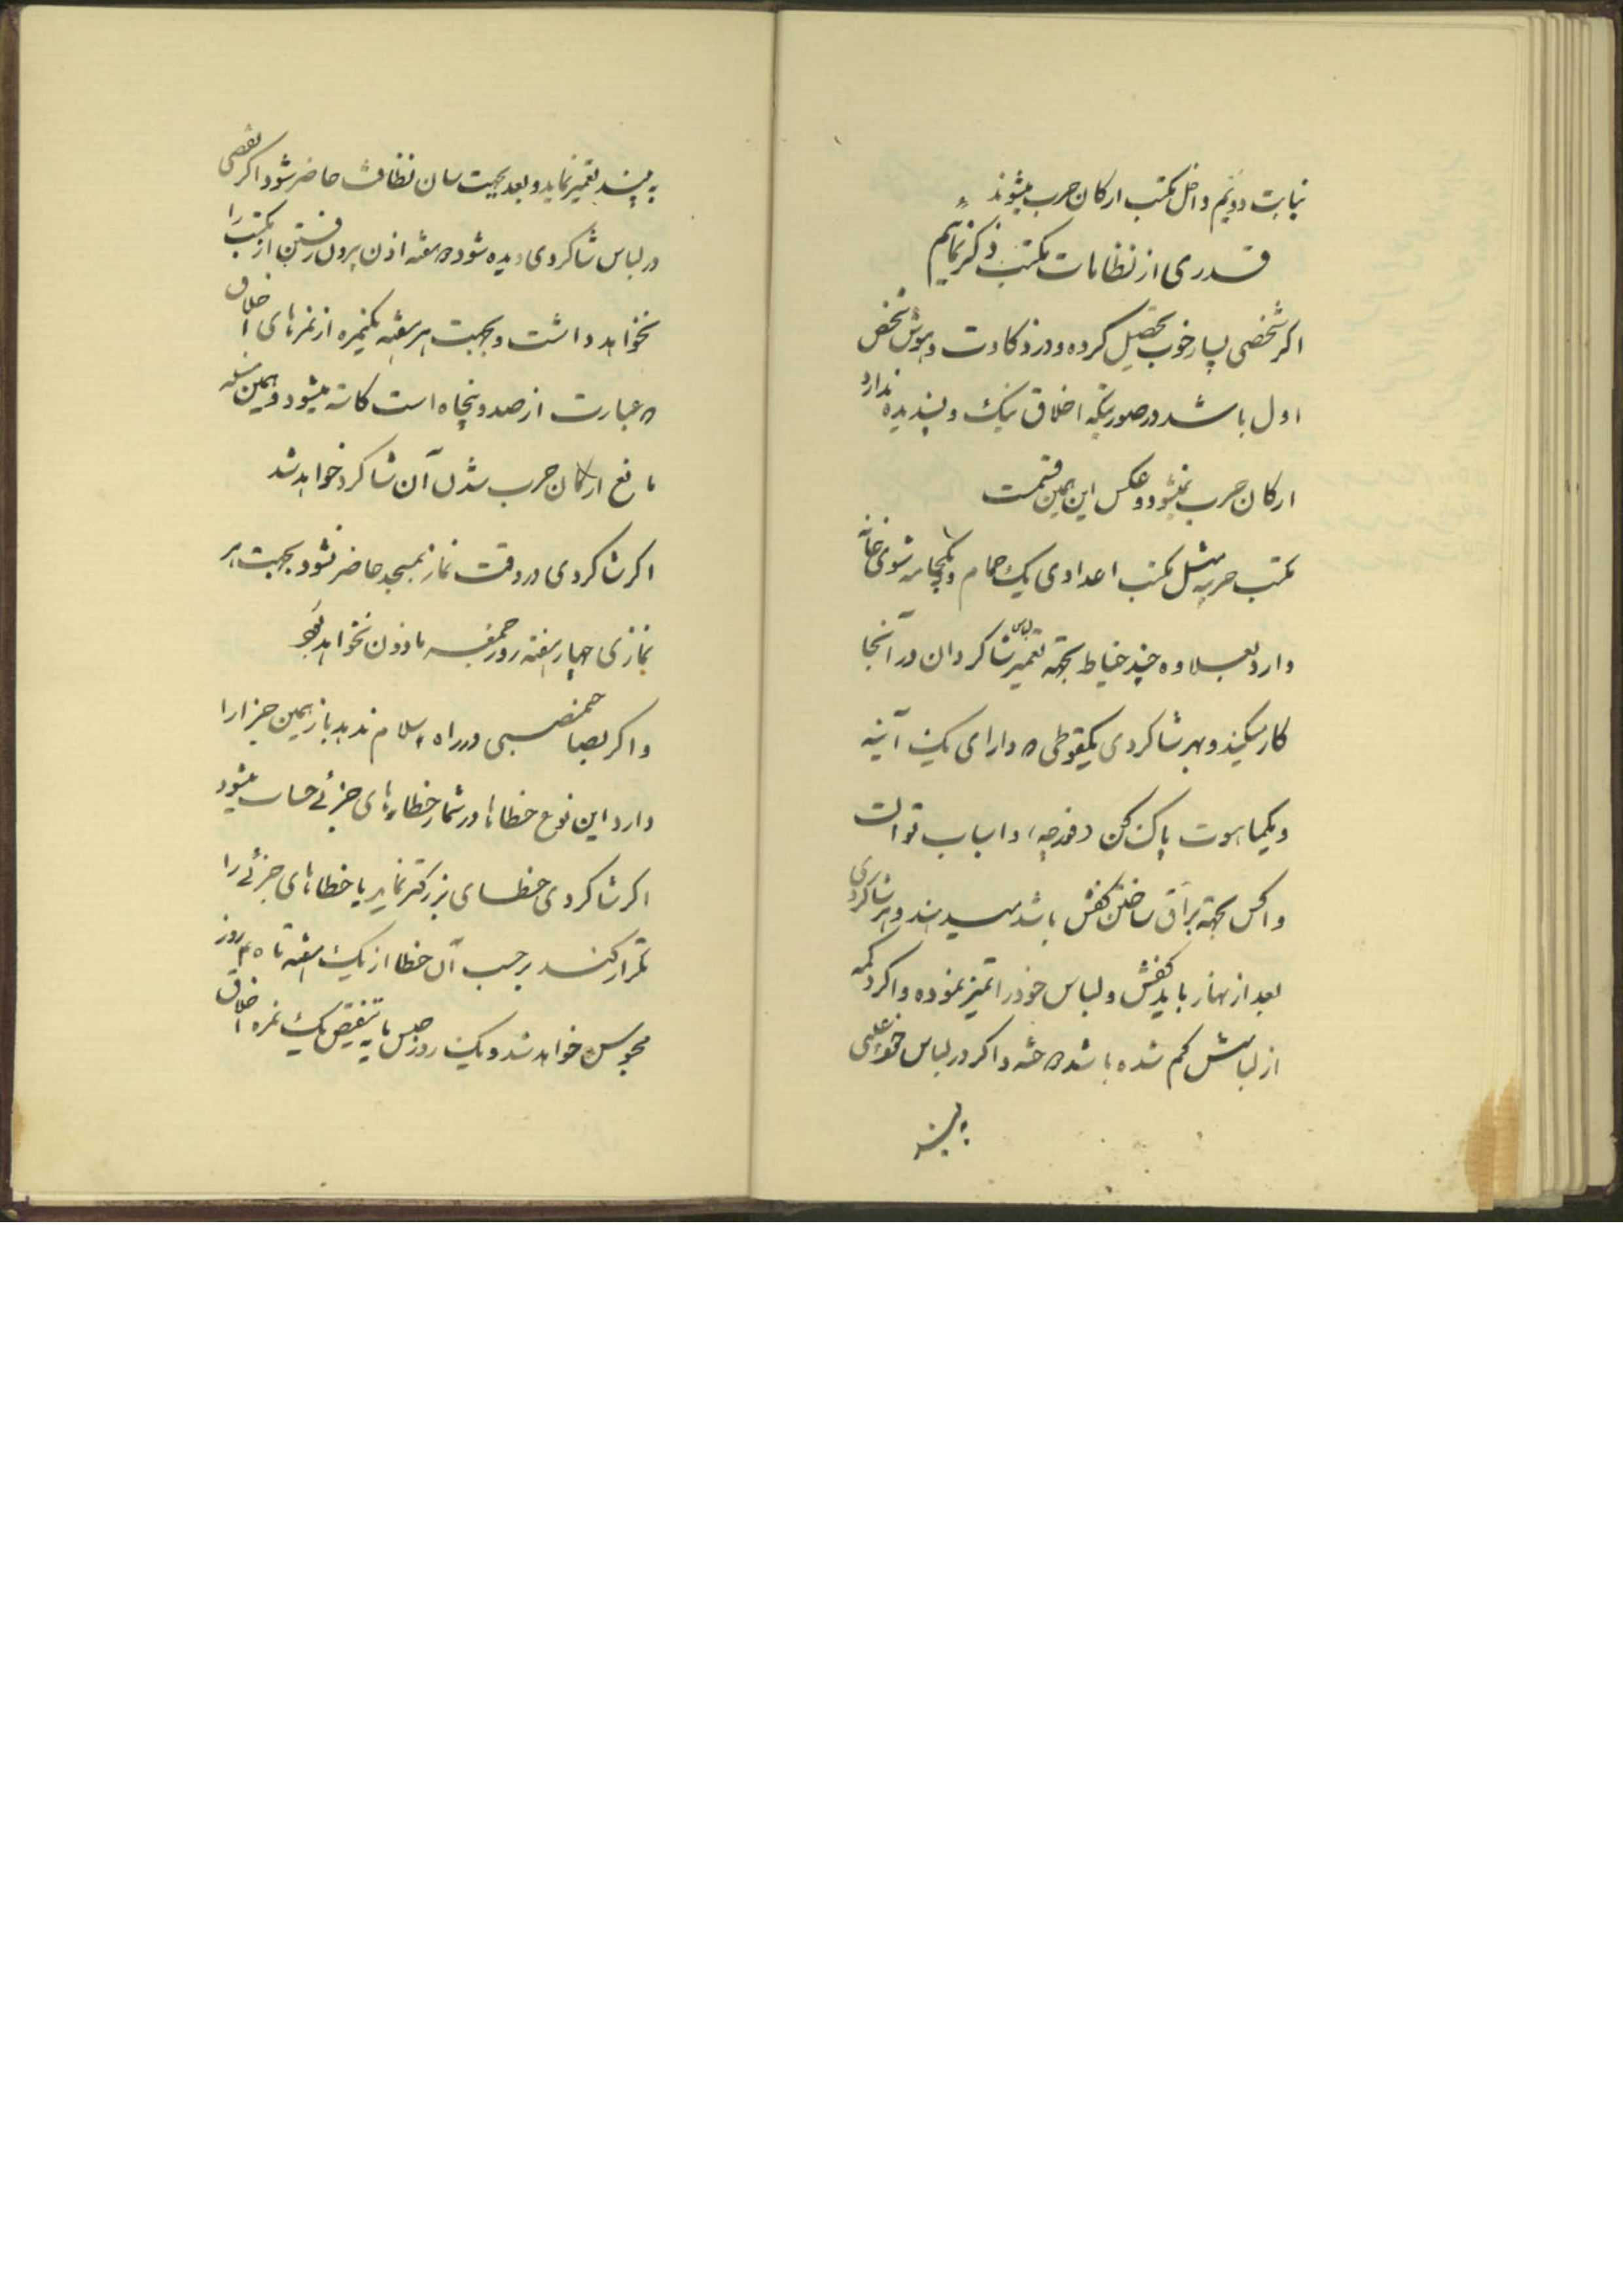 نیابت دویم داخل مکتب ارکان حرب میشوند
قدری از نظامات مکتب ذکر نمائیم
اکر شخصی بسیار خوب تحصیل کرده و در ذکاوت و هوش شخص
اول باشد در صورتیکه اخلاق نیک و پسندیده ندارد
ارکان حرب نمیشود و عکس این همین قسمت
مکتب حربیه مثل مکتب اعدادی یک حمام و یکجامه شوی خانه
دارد بعلاوه چند خیاط بجهة تعمیر لباس شاکردان در آنجا
کار میکنند و بهر شاکردی یکقوطی که دارای یک آئینه
و یک ماهوت پاک کن (فورچه) و اسباب توالت
و اکس بجهة براق ساختن کفش باشد میدهند و هر شاکردی
بعد از نهار باید کفش و لباس خود را تمیز نموده و اکر دکمه
از لباسش کم شده باشد و اکر در لباس خود عیبی
به بیند
به بیند تعمیر نماید و بعد بجهت سان نظافت حاضر شود اکر نقصی
در لباس شاکردی دیده شود هفته اذن بیرون رفتن از مکتب را
نخواهد داشت و بجهت هر هفته یکنمره از نمرهای اخلاق
که عبارت از صد و پنجاه است کاسته میشود و همین مسئله
مانع ارکان حرب شدن آن شاکرد خواهد شد
اکر شاکردی در وقت نماز بمسجد حاضر نشود بجهت هر
نمازی چهار هفته روز جمعه مأذون نخواهد بود
و اکر بصاحبمنصبی در راه سلام ندهد باز همین جزا را
دارد این نوع خطاها در شمار خطاهای جزئی حساب میشود
اکر شاکردی خطای بزرکتر نماید یا خطاهای جزئی را
تکرار کند برحسب آن خطا از یک هفته تا ۴۵ روز
محبوس خواهد شد و یک روز حبس با تنقیص یک نمره اخلاق